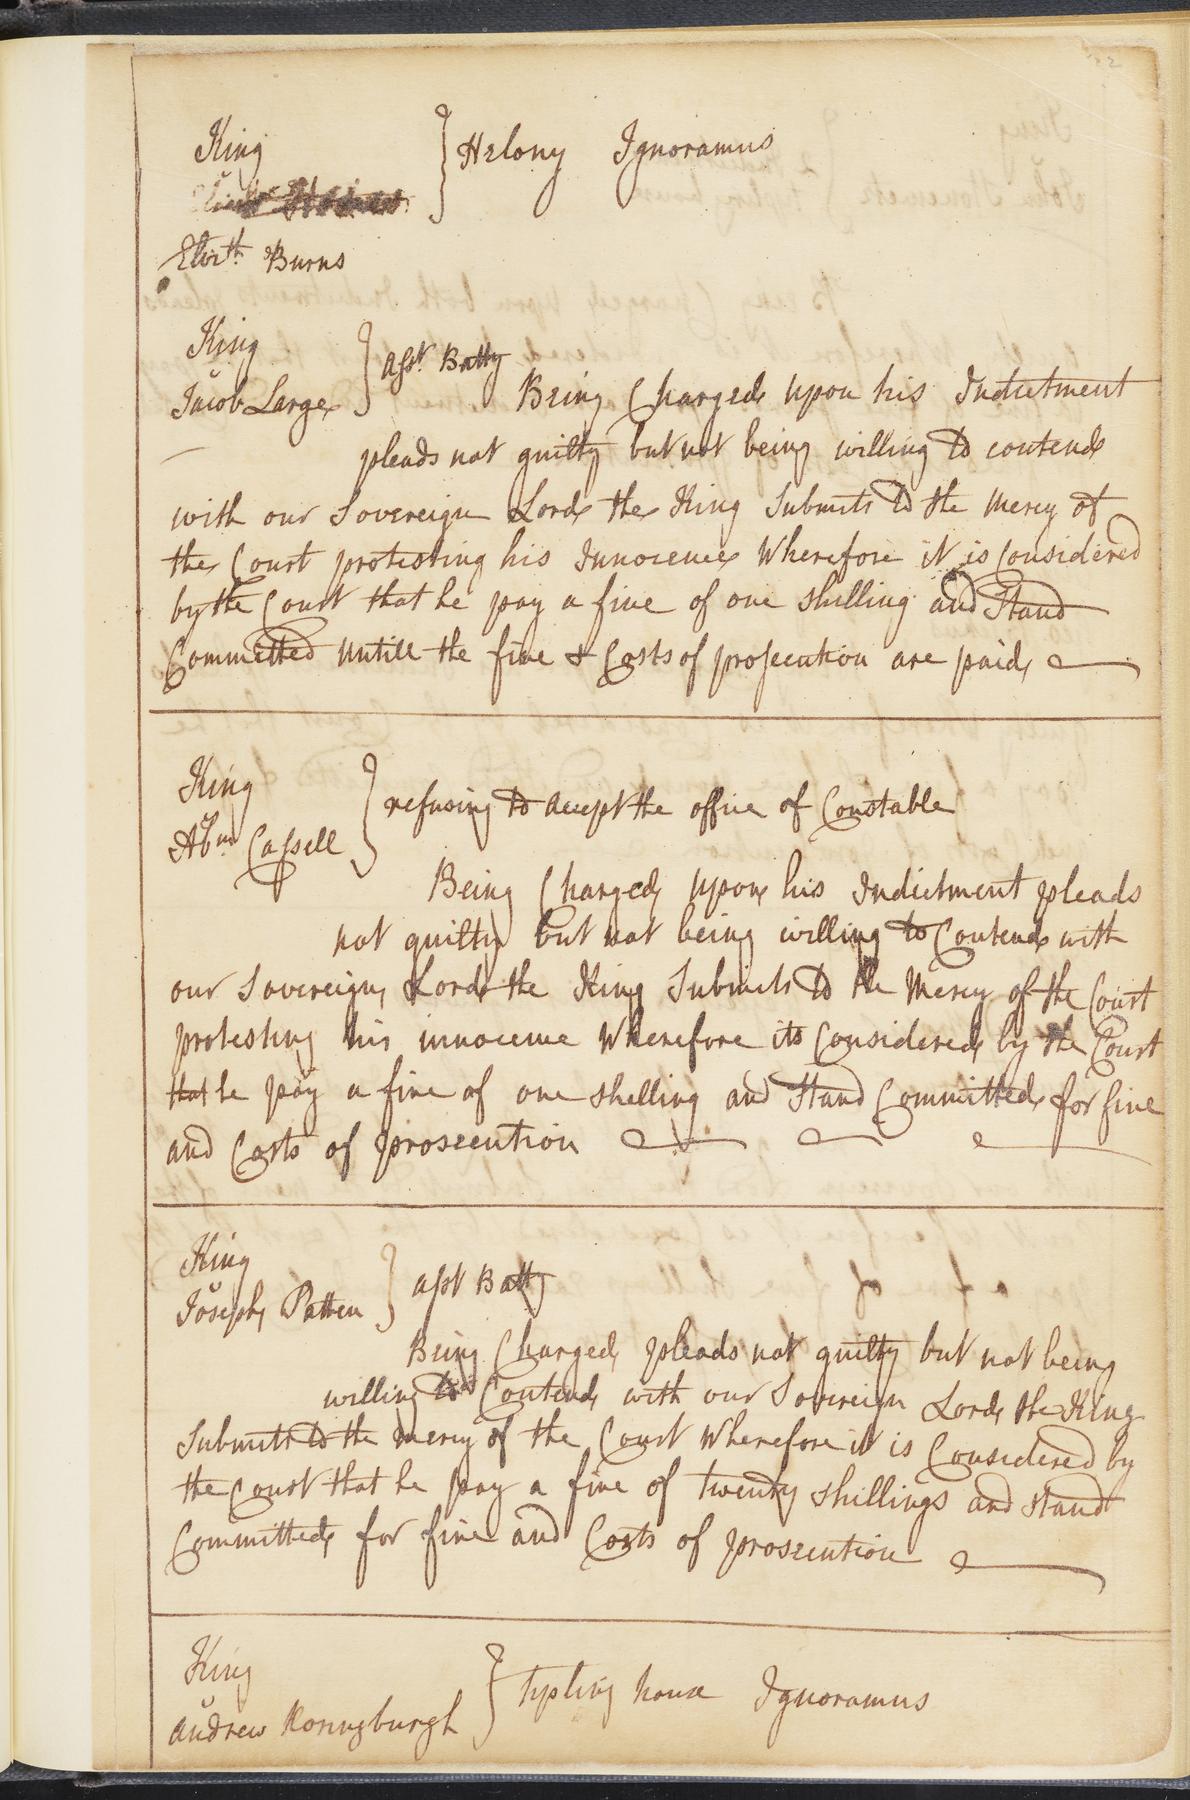 King
v
Helony Ignoramus
Eliz.th Burns
King
v
Jacob Large
Asst. Batty
Being Charged upon his Indictment
pleads not guilty but not being willing to contend
with our Sovereign Lord the King Submits to the Mercy of
the Court protesting his Innocence Wherefore it is Considered
by the Court that he pay a fine of one shilling and Stand
Committed untill the fine & Costs of prosecution are paid
King
v
Abm Cassell
refusing to accept the office of Constable
Being Charged upon his Indictment pleads
not guilty but not being willing to Contend with
our Sovereign Lord the King Submits to the Mercy of the Court
protesting his innocence Wherefore its Considered by the Court
that he pay a fine of one shelling and Stand Committed for fine
and Costs of prosecution
King
v
Joseph Patten
asst Batty
Being Charged pleads not guilty but not being
willing to Contend with our Sovereign Lord the King
Submits to the mercy of the Court Wherefore it is Considered by
the Court that he pay a fine of twenty shillings and stand
Committed for fine and Costs of prosecution
King
v
Andrew Honingburgh
tipling house Ignoramus